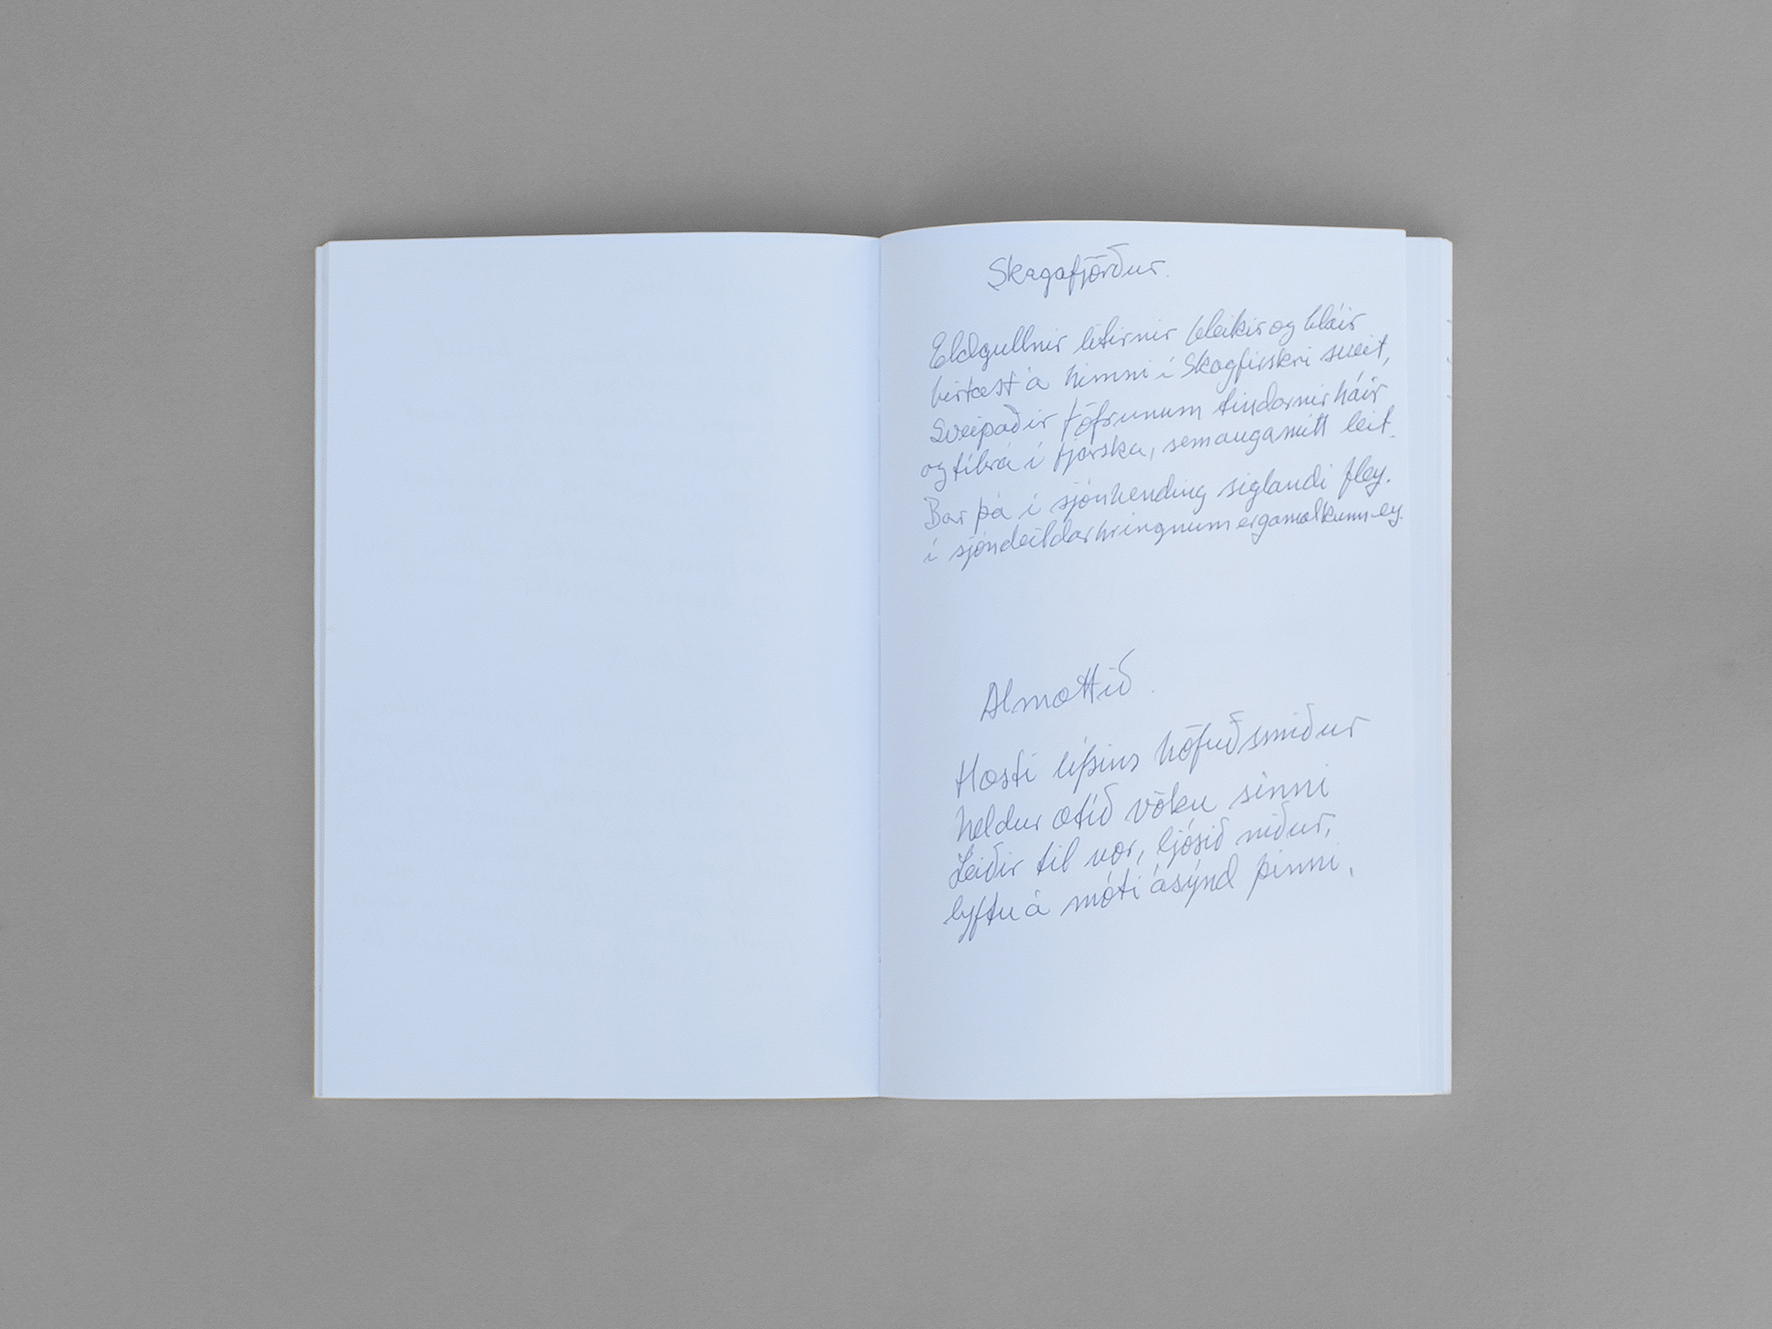 Skagafjörður.
Eldgullnir litirnir bleikir og bláir
birtast á himni í Skagfirskri sveit,
Sveipaðir töfrunum tindarnir háir
og tíbrá í fjarska, sem auga mitt leit.
Bar þá í sjónhending siglandi fley.
í sjóndeildarhringnum er gamalkunn ey.
Almættið.
Hæsti lífsins höfuðsmiður
heldur ætíð vöku sinni
Leiðir til vor, ljósið niður,
lyftu á móti ásýnd þinni.